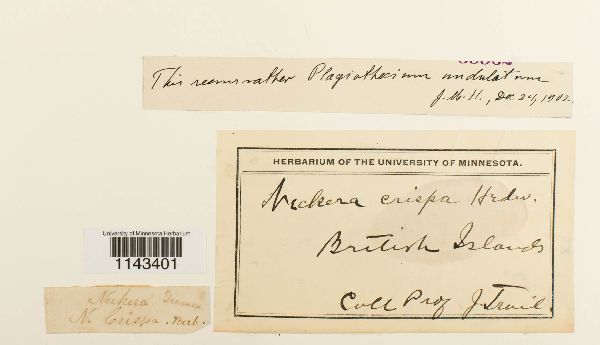 This seems rather Plagiothecium undulatum
J. M. H., Dec 24, 1902.
HERBARIUM OF THE UNIVERSITY OF MINNESOTA.
Neckera crispa Hedw.
British Islands
Coll Prof J Trail
University of Minnesota Herbarium
1143401
Neckera
N. Crispa